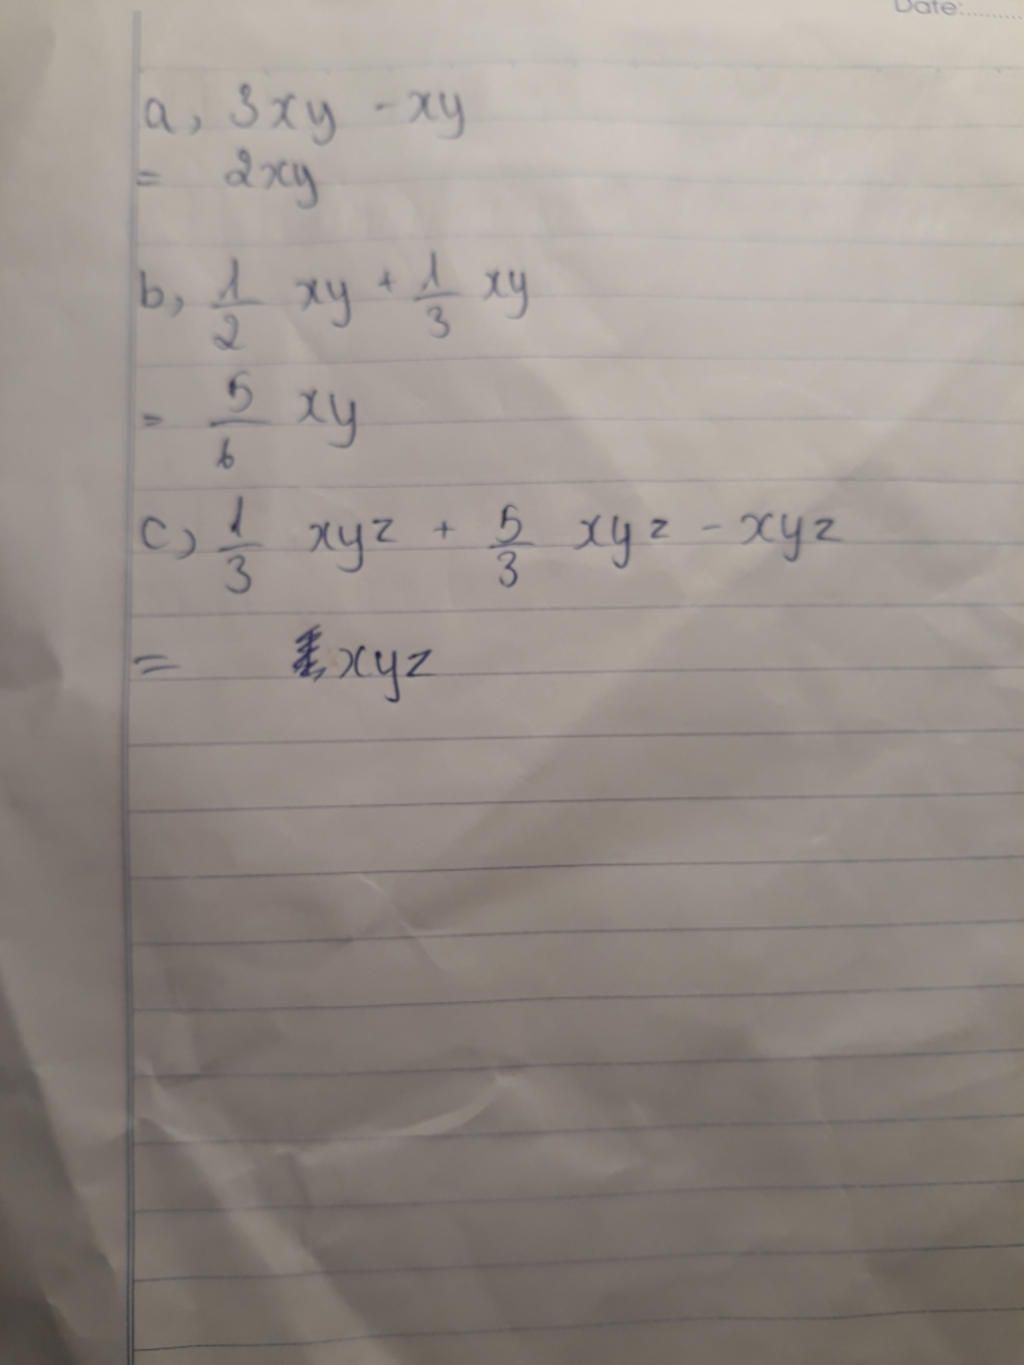 Date:..........
a, 3xy - xy
= 2xy
b, 1/2 xy + 1/3 xy
= 5/6 xy
c, 1/3 xyz + 5/3 xyz - xyz
= xyz